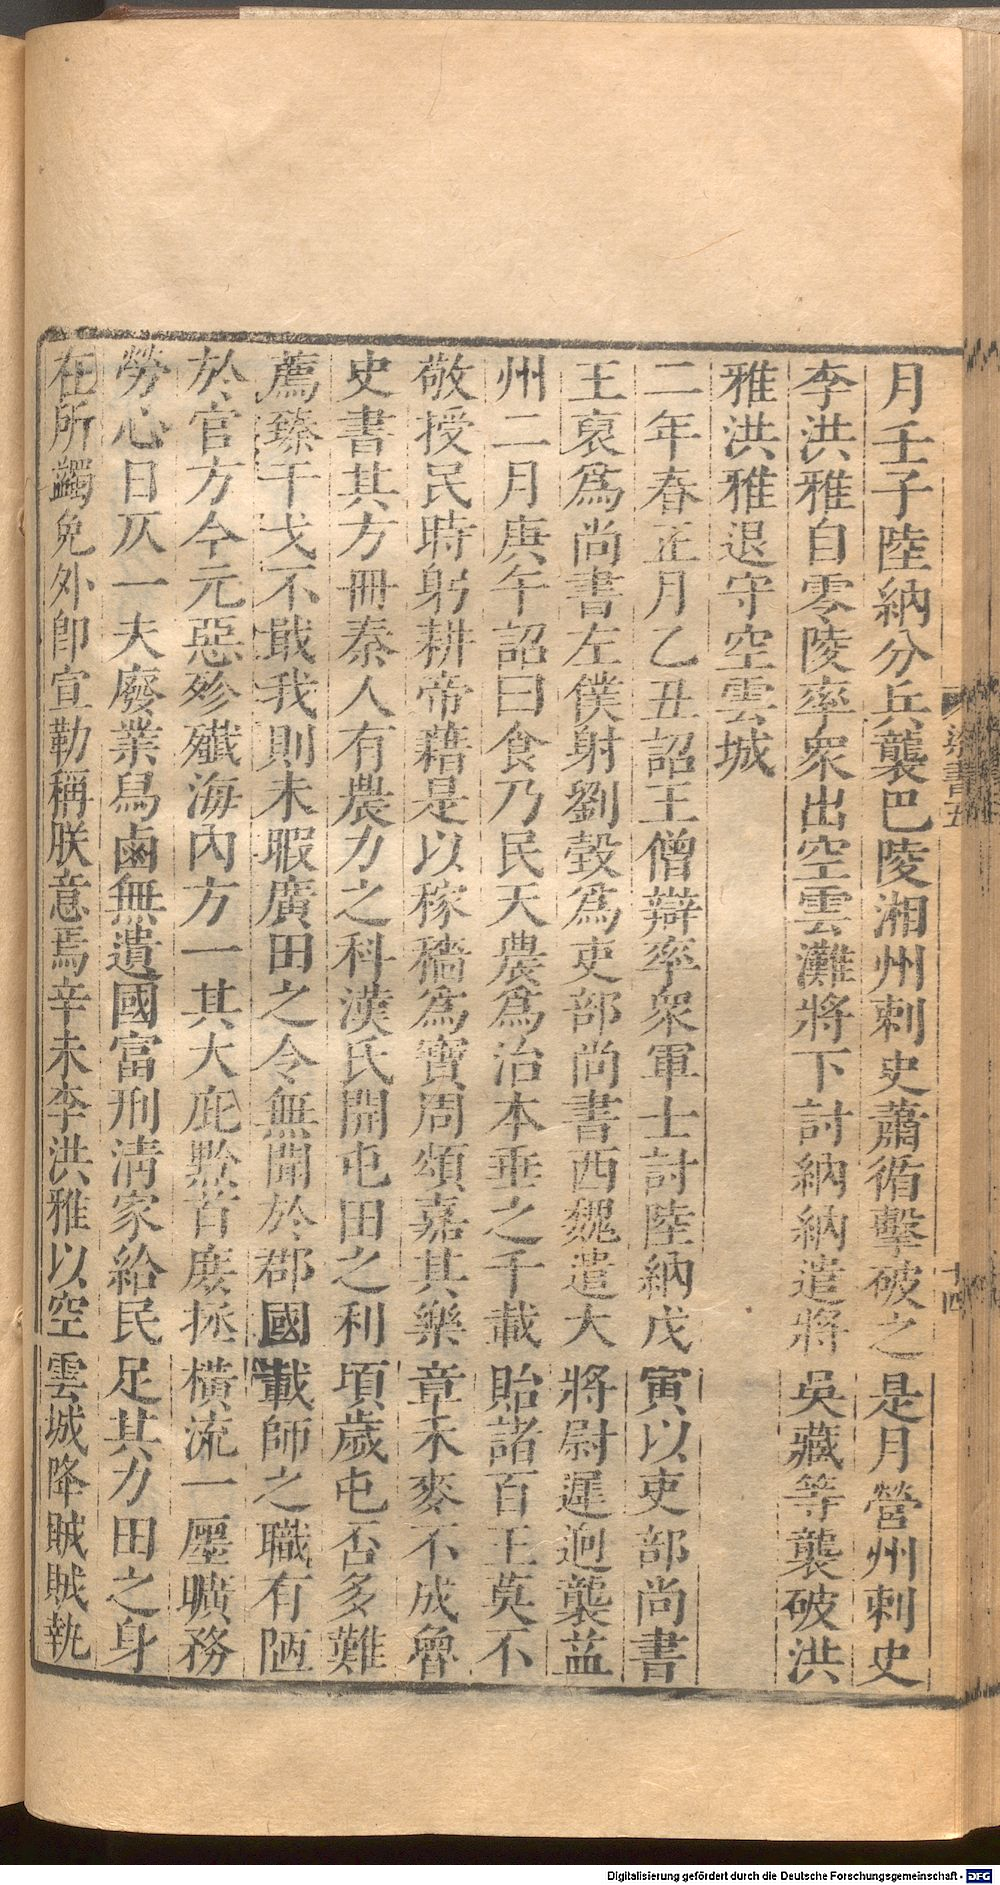 月壬子陸納分兵襲巴陵湘州刺史蕭循擊破之是月營州刺史
李洪雅自零陵率衆出空雲灘將下討納納遣將吳藏等襲破洪
雅洪雅退守空雲城
二年春正月乙丑詔王僧辯率衆軍士討陸納戊寅以吏部尚書
王裒爲尚書左僕射劉瑴爲吏部尚書西魏遣大將尉遲迥襲益
州二月庚午詔曰食乃民天農爲治本垂之千載貽諸百王莫不
敬授民時躬耕帝藉是以稼穡爲寶周頌嘉其樂章禾麥不成魯
史書其方冊秦人有農力之科漢氏開屯田之利頃歲屯否多難
薦臻干戈不戢我則未暇廣田之令無聞於郡國載師之職有陋
於官方今元惡殄殲海內方一其大庇黔首庶拯橫流一廛曠務
勞心日仄一夫廢業舄鹵無遺國富刑清家給民足其力田之身
在所蠲免外卽宣勒稱朕意焉辛未李洪雅以空雲城降賊賊執
梁書五
十四
Digitalisierung gefördert durch die Deutsche Forschungsgemeinschaft - DFG